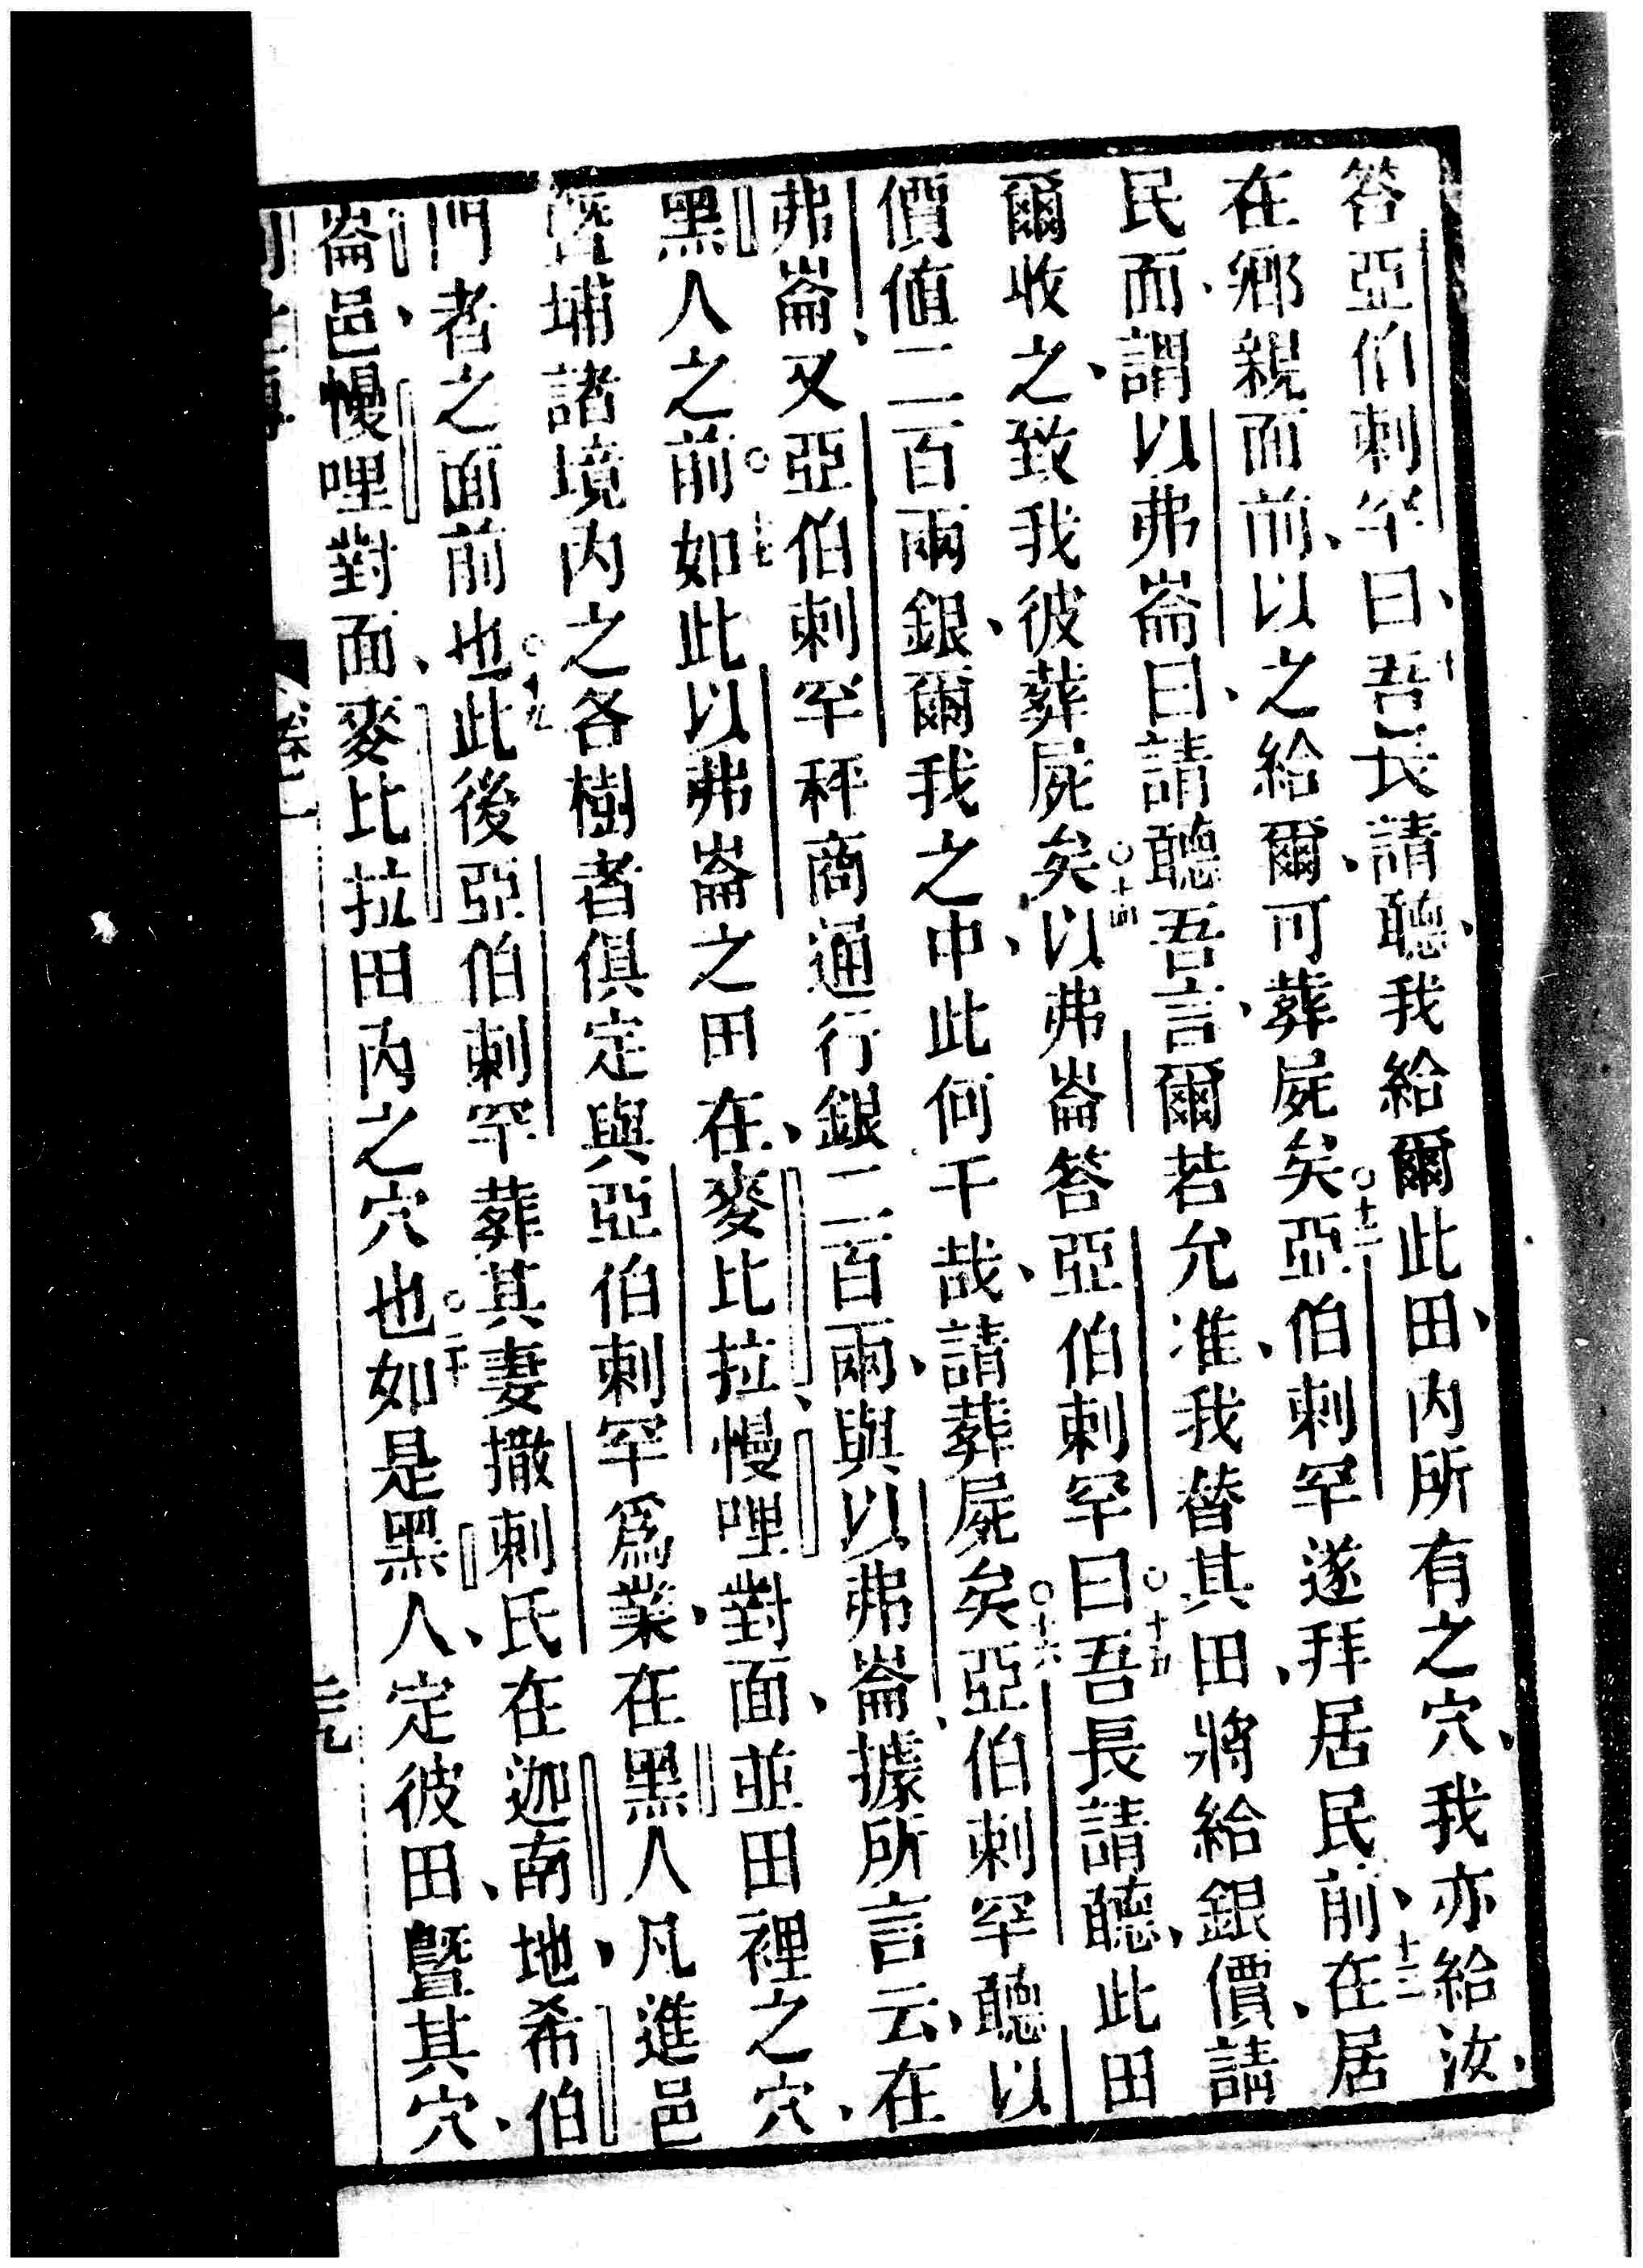 答亞伯剌罕曰、十一吾長請聽、我給爾此田、內所有之穴、我亦給汝、
在鄉親而前、以之給爾、可葬屍矣○十二亞伯剌罕遂拜居民前、十三在居
民而、謂以弗崙曰、請聽吾言、爾若允准、我替其田、將給銀價、請
爾收之、致我彼葬屍矣○十四以弗崙答亞伯剌罕曰○十五吾長請聽、此田
價值二百兩銀、爾我之中、此何干哉、請葬屍矣○十六亞伯剌罕聽以
弗崙、又亞伯剌罕秤商通行銀二百兩、與以弗崙、據所言云、在
黑人之前○十七如此以弗崙之田在、麥比拉、慢哩對面、並田裡之穴、
暨埔諸境內之各樹者俱定與亞伯剌罕爲業、在黑人凡進邑
門者之面前也○十九此後亞伯剌罕葬其妻撒剌氏在迦南地、希伯
崙邑、慢哩對面、麥比拉田內之穴也○二十如是黑人、定彼田、暨其穴、
卷一